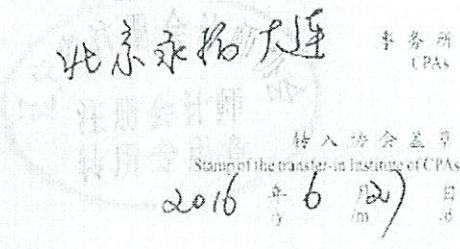 北京永拓大连 事务所
CPAs
转入协会盖章
Stamp of the transfer-in Institute of CPAs
2016 年 6 月 27 日
/y /m /d